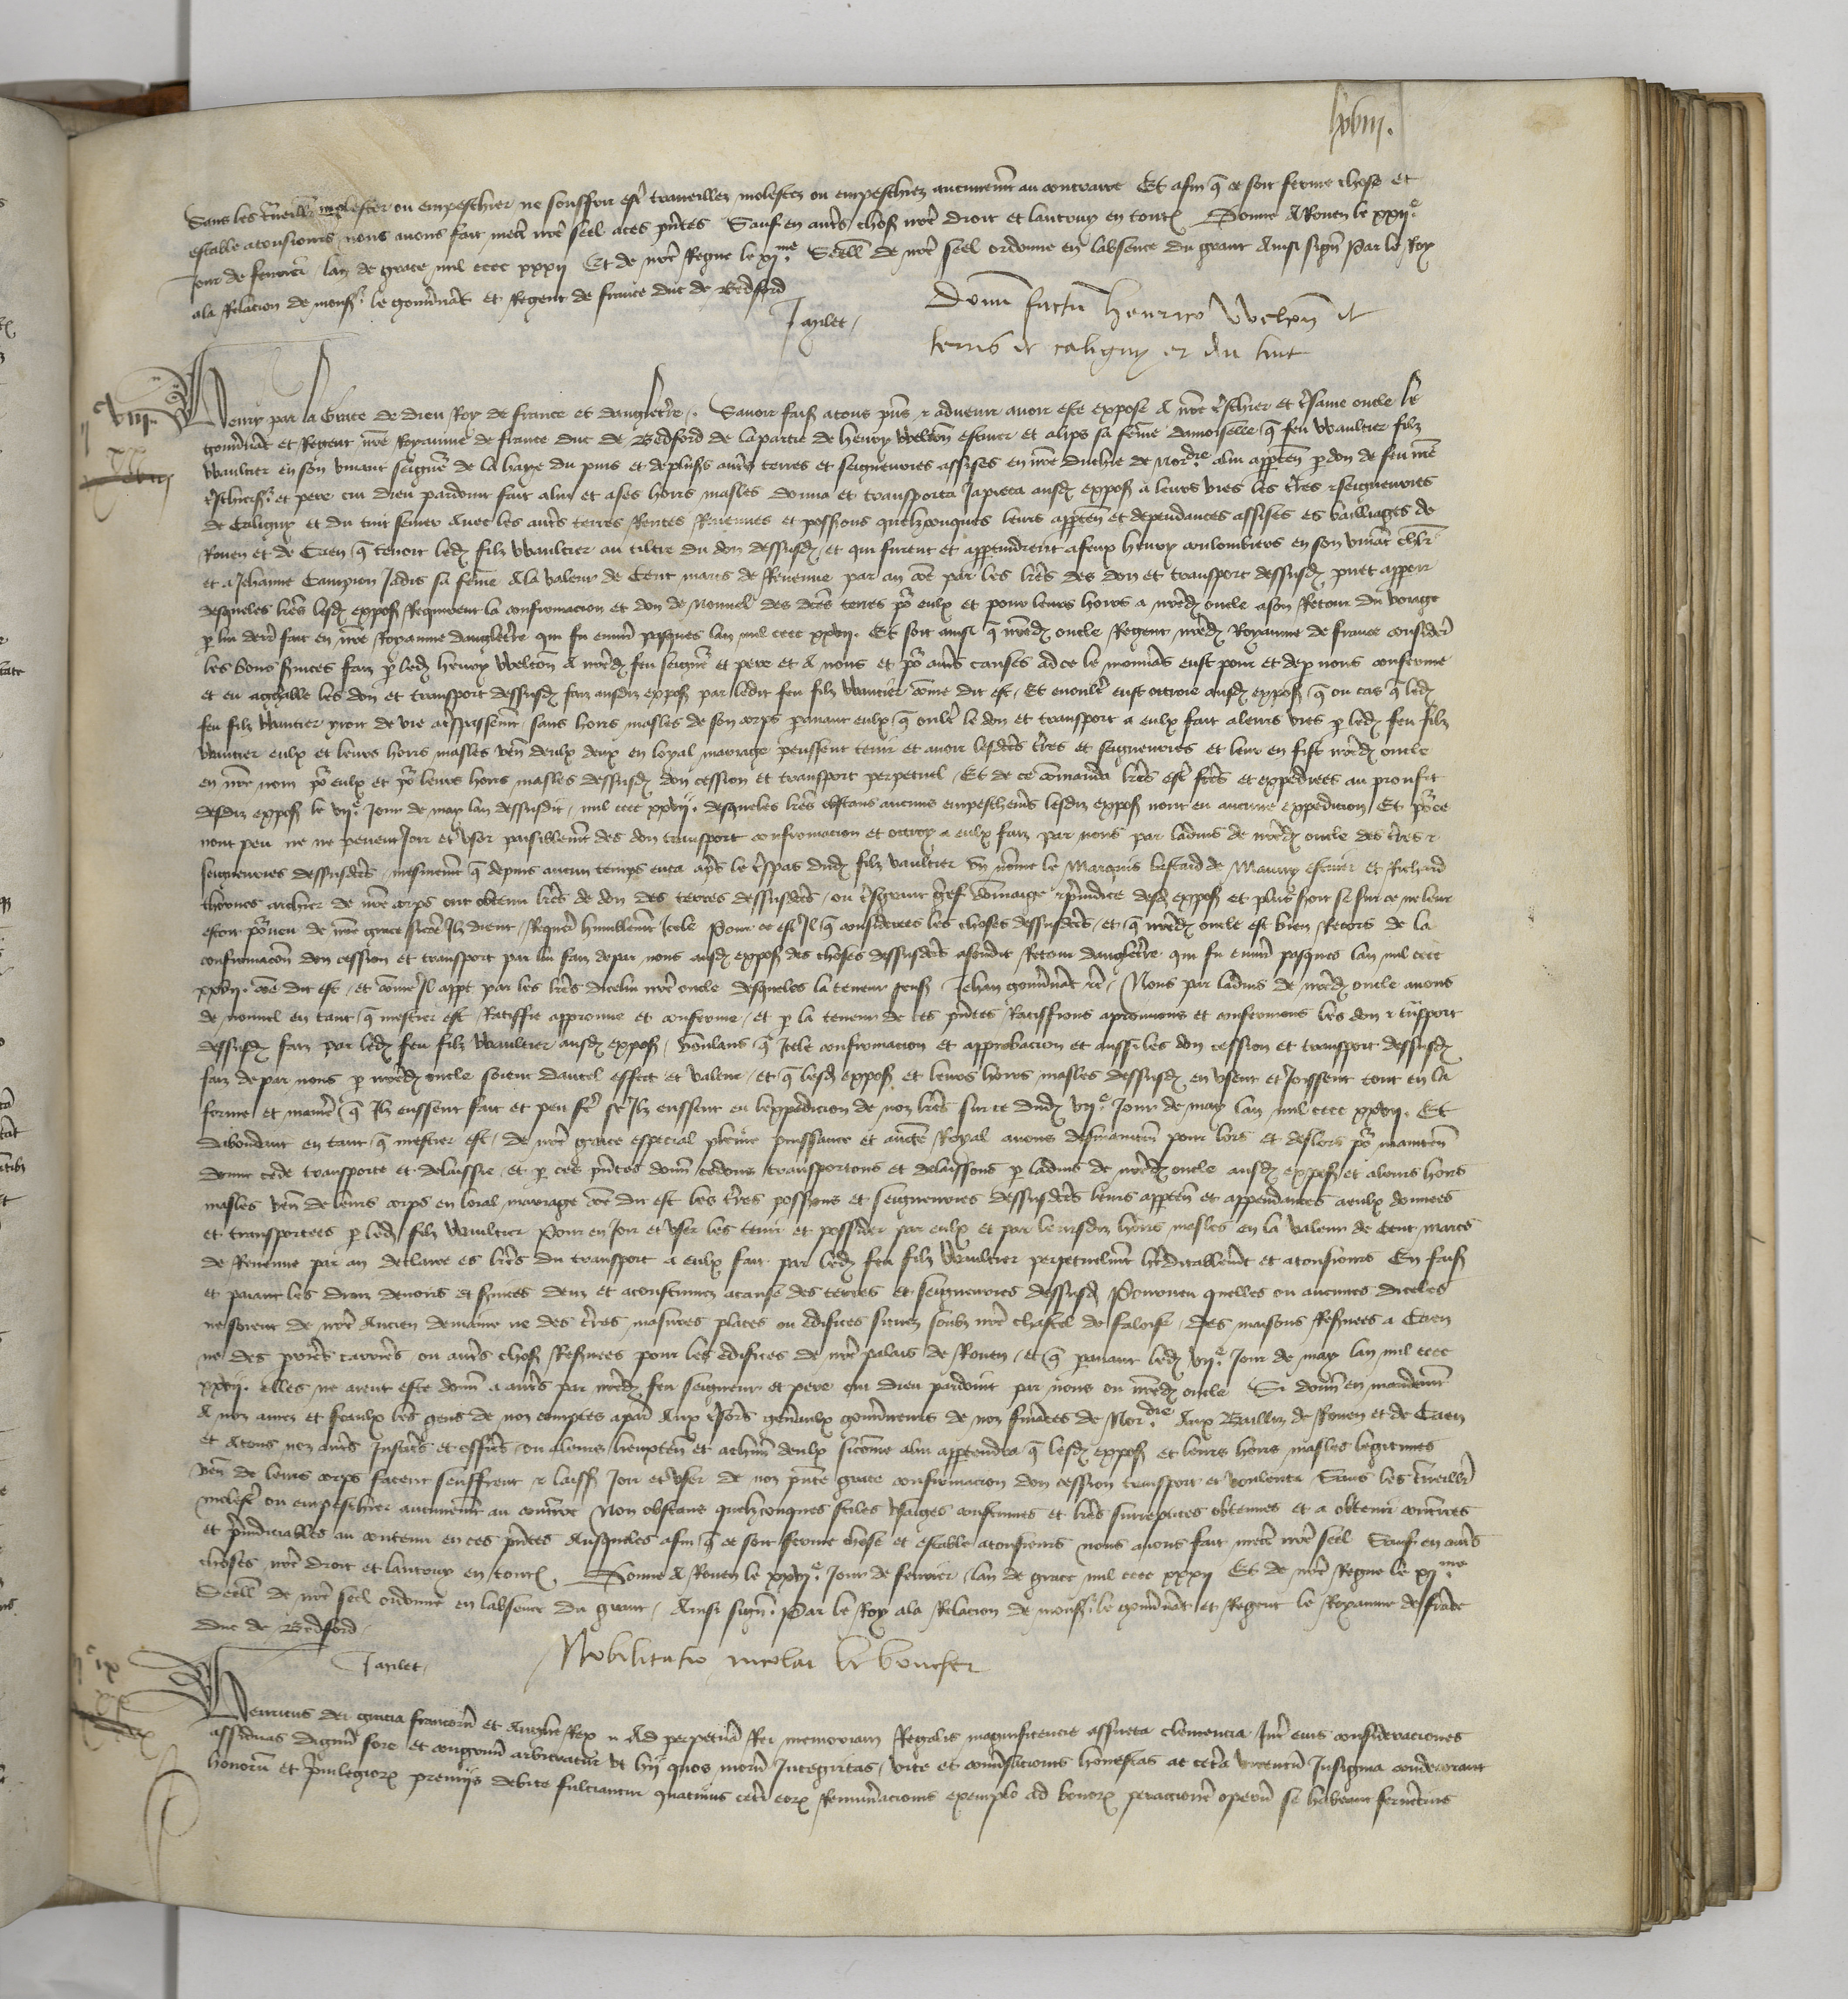 lxviii.
Sans les traveillr molester ou empeschier ne souffrir estre traveillez molestez ou empeschiez aucunement au contraire Et afin que ce soit ferme chose et
estable a tousiours nous avons fait mettre nostre seel a ces presentes Sauf en autres choses nostre droit et lautruy en toutes Donne A Rouen le xxiie
Jour de fevrier lan de grace mil cccc xxxii Et de nostre Regne le xime. Seelle de nostre seel ordonne en labsence du grant Ainsi signe Par le Roy
a la Relacion de monsr le gouvernant et Regent de france duc de Bedford
Janlet
Donum factum henrico Welton de
terris de caligny et du tuit
viii
Henry par la Grace de dieu Roy de france et dangleterre. Savoir faisons a tous presens et advenir avoir este expose A nostre treschier et tresame oncle le
gouvernant et Regent nostre Royaume de france duc de Bedford de la partie de henry Welton escuier et alips sa femme damoiselle que feu Waultier filz
Waultier en son vivant seigneur de la haye du puis et de plusieurs autres terres et seigneuries assises en nostre duchie de Nordie. a lui appartenans par don de feu nostre
treschier seigneur et pere cui dieu pardoint fait a lui et a ses hoirs masles donna et transporta Japieca ausdis exposans a leurs vies les terres et seigneuries
de Caligny et du tuit simer Avec les autres terres Rentes Revenues et possessions quelzconques leurs appartenances et dependances assises es bailliages de
Rouen et de Caen que tenoit ledit filz Waultier au tiltre du don dessusdit, et qui furent et appartindrent a feux henry coulombieres en son vivant chevalier
et a Jehanne Campion Jadis sa femme A la valeur de Cent mars de Revenue par an comme par les lettres des don et transport dessusdis puet apparoir
desqueles lettres lesdis exposans Requirent la confirmacion et don de nouvel des dictes terres pour eulx et pour leurs hoirs a nostredit oncle a son Retour du voiage
par lui derrenier fait en nostre Royaume dangleterre qui fu environ pasques lan mil cccc xxvii. Et soit ainsi que nostredit oncle Regent nostredit Royaume de france considere
les bons services faiz par ledit henry Welton A nostredit feu seigneur et pere et A nous et pour autres causes ad ce le mouvans eust pour et de par nous conferme
et eu aggreable les don et transport dessusdis faiz ausdiz exposans par ledit feu filz Wautier comme dit est, Et en oultre eust octroie ausdis exposans que ou cas que ledit
feu filz Wautier yroit de vie a trespassement sans hoirs masles de son corps paravant eulx que oultre le don et transport a eulx fait a leurs vies par ledit feu filz
Wautier eulx et leurs hoirs masles venans deulx deux en loyal mariage peussent tenir et avoir lesdictes terres et seigneuries et leur en fist nostredit oncle
en nostre nom pour eulx et pour leurs hoirs masles dessusdis don cession et transport perpetuel, Et de ce commanda lettres estre faictes et expediees au prouffit
desdiz exposans le viie Jour de may lan dessusdit mil cccc xxvii. desqueles lettres obstans aucuns empeschemens lesdiz exposans nont eu aucune expedicion, Et pour ce
nont peu ne ne pevent Joir et user paisiblement des don transport confirmacion et octroy a eulx faiz par nous par ladvis de nostredit oncle des terres et
seigneuries dessusdictes, mesmement que depuis aucun temps enca apres le trespas dudit filz vaultier un nomme le Marquis bastard de Mauny escuier et Richard
thornes archier de nostre corps ont obtenu lettres de don des terres dessusdictes, ou tresgrant grief dommage et preiudice desdis exposans et plus soit se sur ce ne leur
estoit pourveu de nostre grace sicomme Ilz dient, Requerans humblement Icele Pour ce est Il que considerees les choses dessusdictes, et que nostredit oncle est bien Records de la
confirmacion don cession et transport par lui faiz de par nous ausdis exposans des choses dessusdictes a sondit Retour dangleterre qui fu environ pasques lan mil cccc
xxvii. comme dit est, et comme Il appert par les lettres dicelui nostre oncle desqueles la teneur sensuit Jehan gouvernant etc. Nous par ladvis de nostredit oncle avons
de nouvel en tant que mestier est Ratiffie approuve et conferme, et par la teneur de ces presentes Ratiffions aprouvons et confermons les don et transport
dessusdis faiz par ledit feu filz Waultier ausdis exposans, voulans que Icele confirmacion et approbacion et aussi les don cession et transport dessusdis
faiz de par nous par nostredit oncle soient dautel effect et valeur, et que lesdis exposans et leurs hoirs masles dessusdis en usent et Joissent tout en la
forme et maniere que Ilz eussent fait et peu fere se Ilz eussent eu lexpedicion de noz lettres sur ce dudit viie Jour de may lan mil cccc xxvii. Et
dabondant en tant que mestier est, de nostre grace especial plaine puissance et auctorite Royal avons desmaintenant pour lors et deslors pour maintenant
donne cede transporte et delaissie, et par ces presentes donnons cedons transportons et delaissons par ladvis de nostredit oncle ausdis exposans et a leurs hoirs
masles venans de leurs corps en loial mariage comme dit est les terres possessions et seigneuries dessusdictes leurs appartenances et appendances a eulx donnees
et transportees par ledit filz Waultier Pour en Joir et user les tenir et posseder par eulx et par leursdiz hoirs masles en la valeur de cent marcs
de Revenue par an declaree es lettres du transport a eulx fait par ledit feu filz Waultier perpetuelment hereditablement et a tousiours En faisant
et paiant les droiz devoirs et services deuz et acoustumez a cause des terres et seigneuries dessusdis Pourveu quelles ou aucunes diceles
ne soient de nostre Ancien demaine ne des terres masures places ou edifices situez soubz nostre chastel de faloise, des maisons Reservees a Caen
ne des pierres carrieres, ou autres choses Reservees pour les edifices de nostre palais de Rouen, et que paravant ledit viie Jour de may lan mil cccc
xxvii. elles ne aient este donnees a autres par nostredit feu seigneur et pere cui dieu pardoint par nous ou nostredit oncle Si donnons en mandement
A noz amez et feaulx les gens de noz comptes a paris Aux tresoriers generaulx gouverneurs de noz finances de Nordie. Aux Bailliz de Rouen et de Caen
et A tous noz autres Justiciers et officiers, ou a leurs lieuxtenans et a chascun deulx sicomme a lui appartendra que lesdis exposans et leurs hoirs masles legitimes
venans de leurs corps facent seuffrent et laissent Joir et user de noz presente grace confirmacion don cession transport et voulente Sans les traveillier
molester ou empeschier aucunement au contraire Non obstans quelzconques stiles usaiges coustumes et lettres surreptices obtenues et a obtenir contraires
et preiudiciables au contenu en ces presentes Ausqueles afin que ce soit ferme chose et estable a tousiours nous avons fait mettre nostre seel Sauf en autres
choses nostre droit et lautruy en toutes. Donne A Rouen le xxvie. Jour de fevrier, lan de grace mil cccc xxxii Et de nostre Regne le xime.
Seelle de nostre seel ordonne en labsence du grant, Ainsi signe. Par le Roy a la Relacion de monsr. le gouvernant et Regent le Royaume de france
duc de Bedford,
Janlet,
Nobilitatio nicolai le boucher
ix
Henricus dei gracia francorum et Anglie Rex Ad perpetuam Rei memoriam Regalis magnificencie assueta clemencia Inter eius consideraciones
assiduas dignum fore et congruum arbitratur ut hii quos morum Integritas, vite et conversacionis honestas ac cetera virtutum Insignia condecorant
honorum et privilegiorum premiis debite fulciantur quatinus ceteri eorum Remuneracionis exemplo ad bonorum peraccionem operum se habeant ferventius